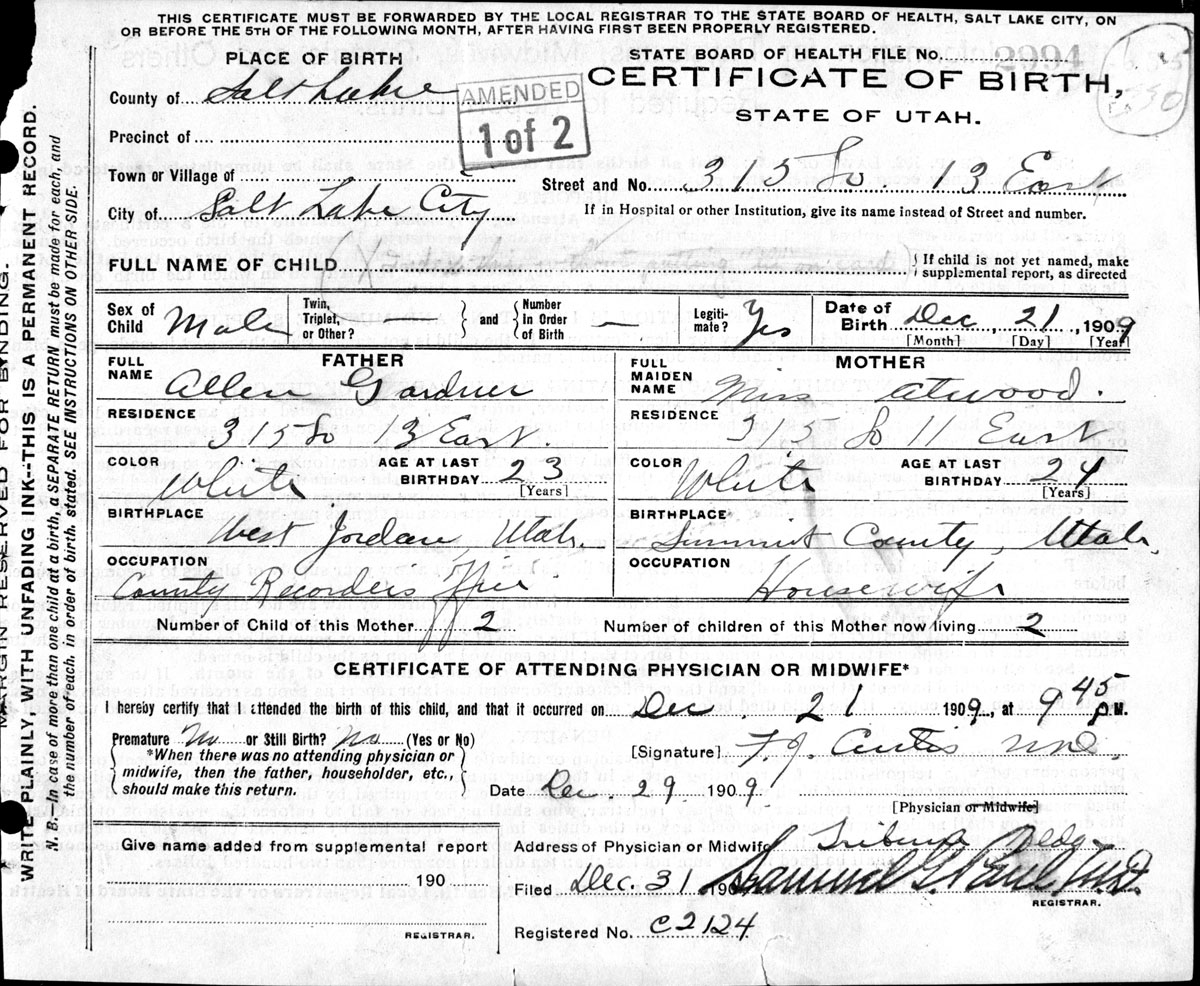 THIS CERTIFICATE MUST BE FORWARDED BY THE LOCAL REGISTRAR TO THE STATE BOARD OF HEALTH, SALT LAKE CITY, ON
OR BEFORE THE 5TH OF THE FOLLOWING MONTH, AFTER HAVING FIRST BEEN PROPERLY REGISTERED.
PLACE OF BIRTH
STATE BOARD OF HEALTH FILE NO. 2994
County of Salt Lake
AMENDED
1 of 2
CERTIFICATE OF BIRTH,
STATE OF UTAH.
Precinct of
Town or Village of
Street and No. 315 So. 13 East
City of Salt Lake City
If in Hospital or other Institution, give its name instead of Street and number.
FULL NAME OF CHILD
If child is not yet named, make
supplemental report, as directed
Sex of Child Male
Twin, Triplet, or Other?
and
Number In Order of Birth —
Legiti-mate? Yes
Date of Birth Dec, 21, 1909
[Month] [Day] [Year]
FATHER
MOTHER
FULL NAME Allen Gardner
FULL MAIDEN NAME Miss Atwood.
RESIDENCE
RESIDENCE
315 So 13 East.
So 11 East
COLOR White
AGE AT LAST BIRTHDAY 23 [Years]
COLOR White
AGE AT LAST BIRTHDAY 24 [Years]
BIRTHPLACE
BIRTHPLACE
West Jordan, Utah.
Summit County, Utah.
OCCUPATION
OCCUPATION
County Recorders office
Housewife
Number of Child of this Mother 2
Number of children of this Mother now living 2
CERTIFICATE OF ATTENDING PHYSICIAN OR MIDWIFE*
I hereby certify that I attended the birth of this child, and that it occurred on Dec. 21 1909, at 9 45 P.M.
Premature No or Still Birth? No (Yes or No)
*When there was no attending physician or
midwife, then the father, householder, etc.,
should make this return.
[Signature] F. J. Curtis MD
Date Dec. 29 1909.
[Physician or Midwife]
Give name added from supplemental report
190
REGISTRAR.
Address of Physician or Midwife Tribune Bldg
Filed Dec. 31 1909 Samuel G. Paul M.D.
REGISTRAR.
Registered No. C2124
MARGIN RESERVED FOR BINDING.
WRITE PLAINLY, WITH UNFADING INK--THIS IS A PERMANENT RECORD.
N. B.—In case of more than one child at a birth, a SEPARATE RETURN must be made for each, and
the number of each, in order of birth, stated. SEE INSTRUCTIONS ON OTHER SIDE.